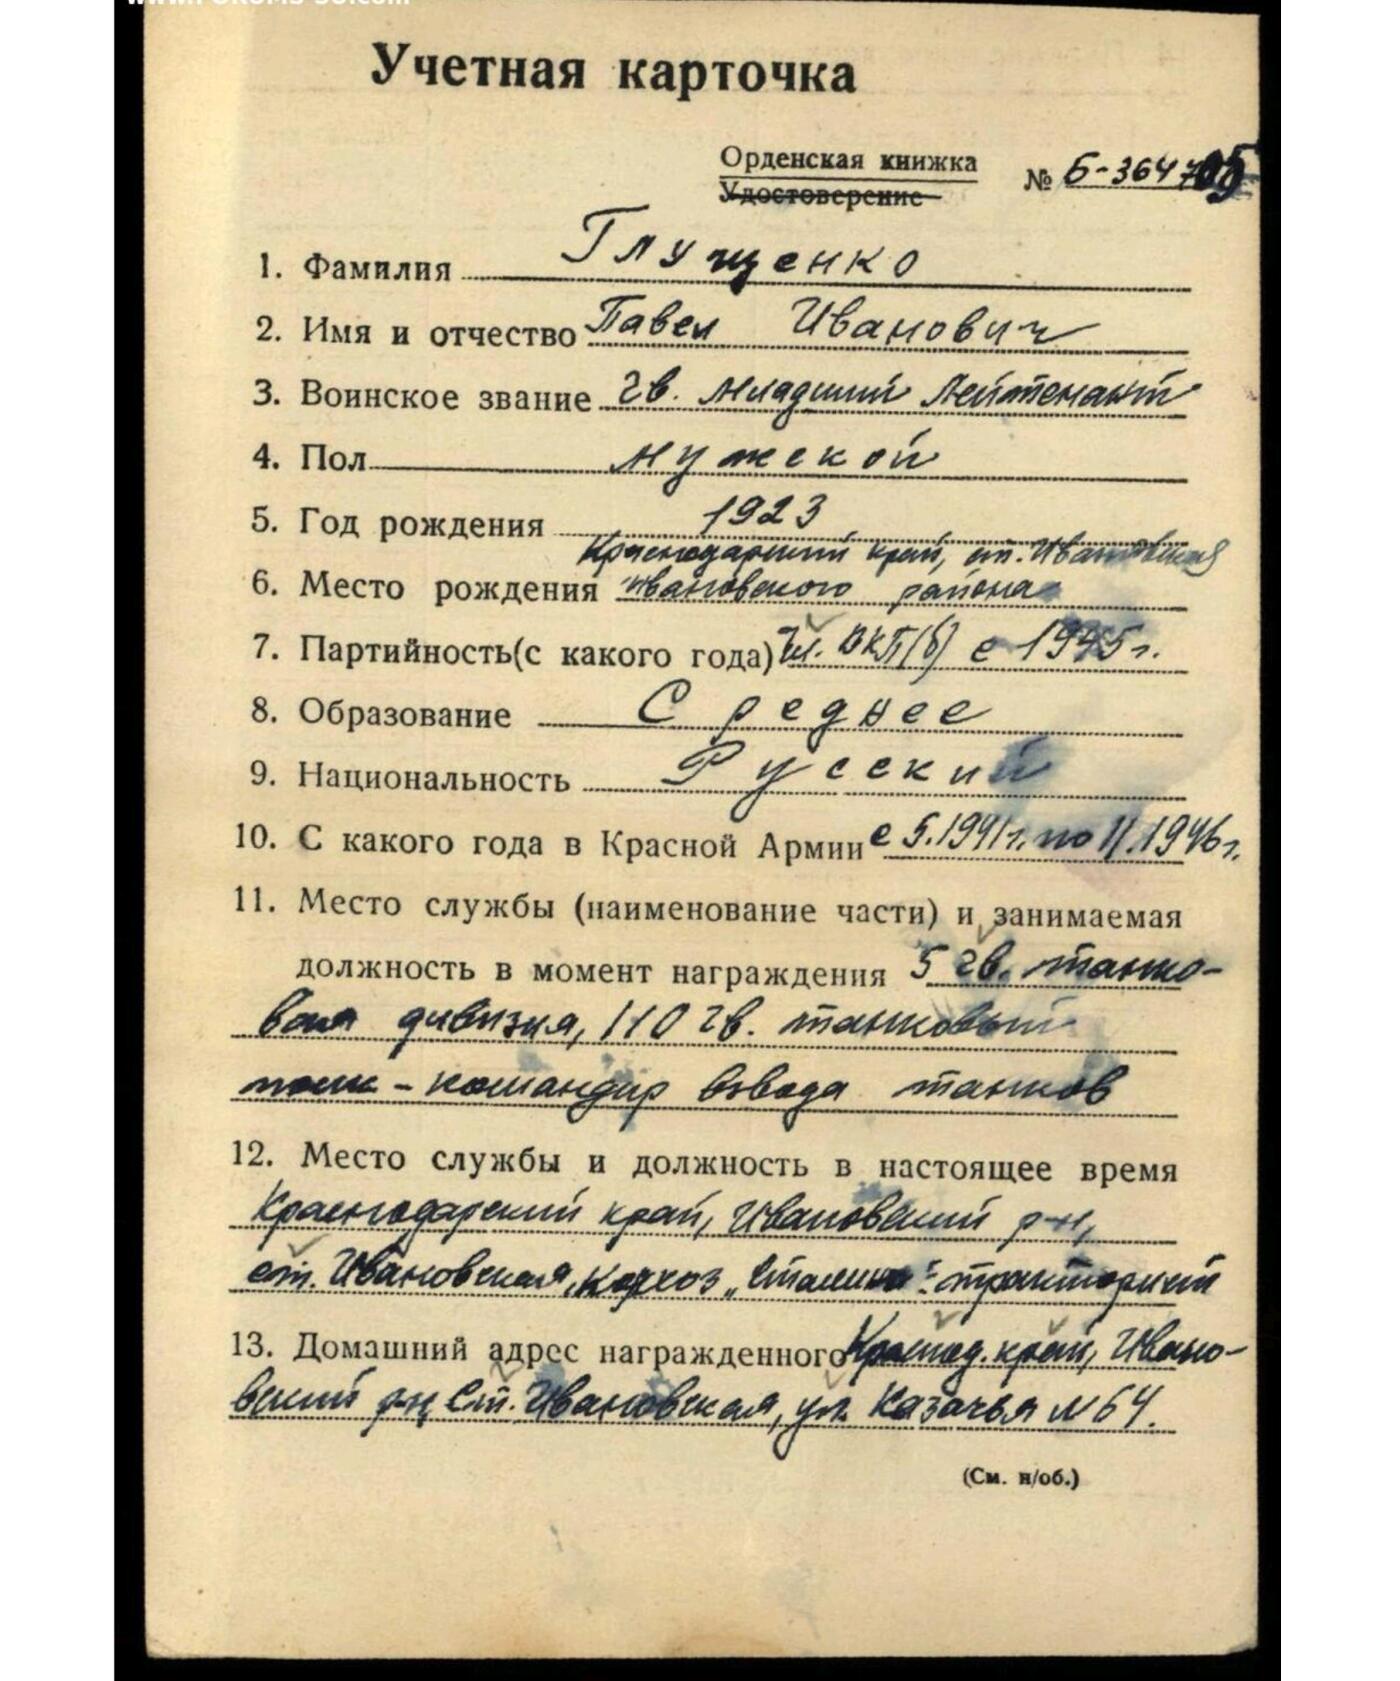 Учетная карточка
Орденская книжка
Удостоверение
№ Б-364705
1. Фамилия Глущенко
2. Имя и отчество Павел Иванович
3. Воинское звание гв. младший лейтенант
4. Пол мужской
5. Год рождения 1923
Краснодарский край, ст. Ивановская
6. Место рождения Ивановского района
7. Партийность(с какого года) чл. ВКП(б) с 1945 г.
8. Образование Среднее
9. Национальность Русский
10. С какого года в Красной Армии с 5.1941г. по 11.1946г.
11. Место службы (наименование части) и занимаемая
должность в момент награждения 5 гв. танко-
вая дивизия, 110 гв. танковый
полк - командир взвода танков
12. Место службы и должность в настоящее время
Краснодарский край, Ивановский р-н,
ст. Ивановская, колхоз „Сталина"-тракторист
13. Домашний адрес награжденного Краснод. край, Ивано-
вский р-н, ст. Ивановская, ул. Казачья № 64.
(См. н/об.)